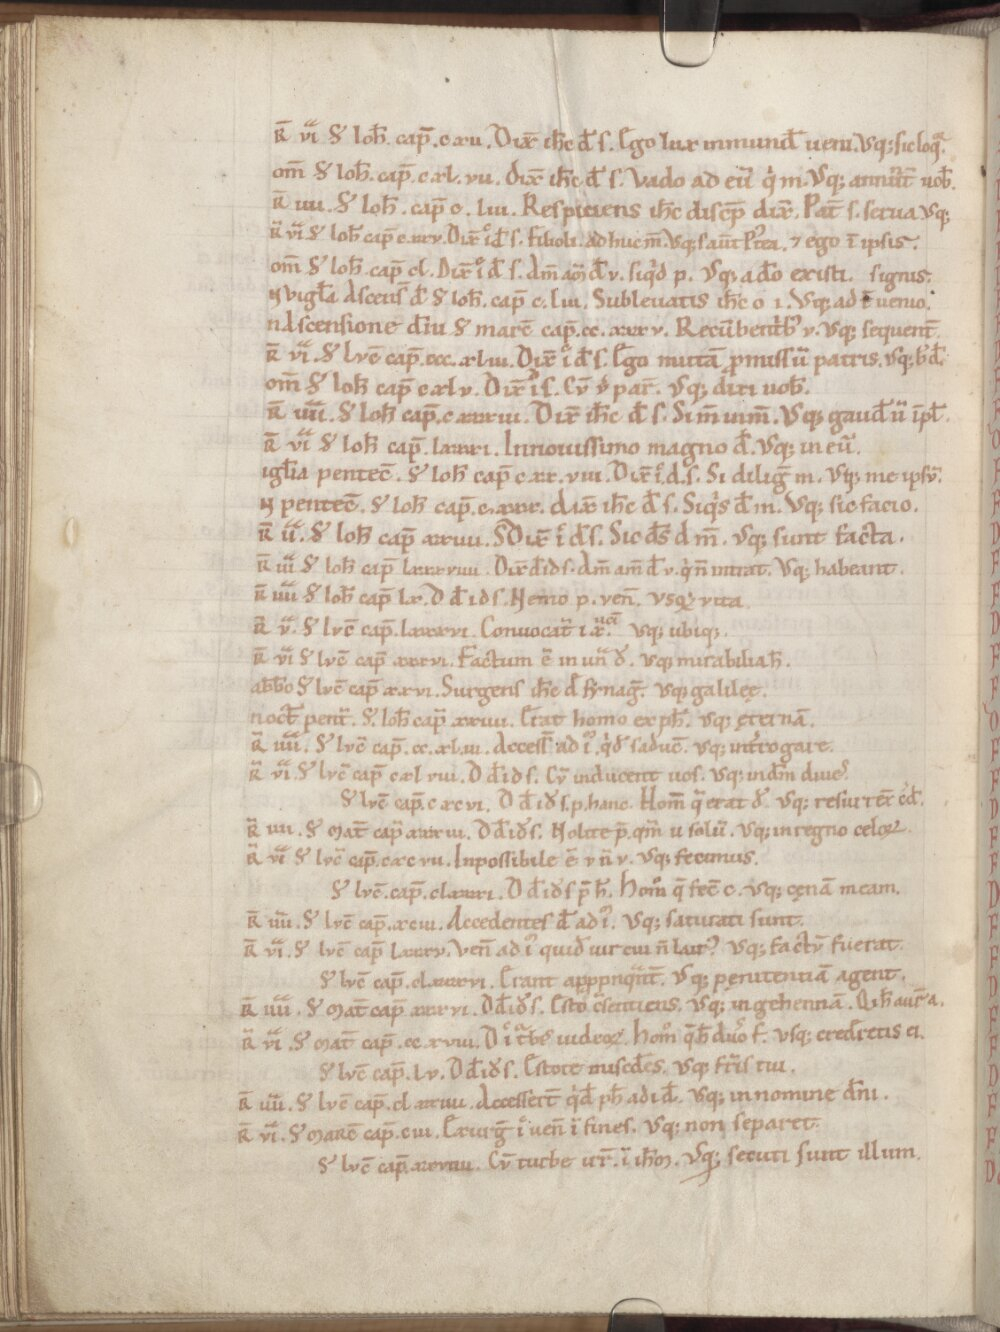 R̄ vi Sꝭ Ioh̄. cap̄. c xu. Dix̄ ih̄c d̄ s. Ego lux inmund̄ ueni. Vsq; sic loq̄r.
om̄ Sꝭ Ioh̄. cap̄. c xl. vii. dix̄ ih̄c d̄ s. Vado ad eū q̇ m. Vsq; annūt uob̄.
R̄ iiii. Sꝭ Ioh̄. cap̄ c. liii. Respiciens ih̄c discip̄ dix̄. Pat̄ s. serua Vsq;
R̄ vi Sꝭ Ioh̄ cap̄ c xxv. Dix̄ i d̄ s. Filioli. adhuc m̄. Vsq; ⁊ ego ī ipsis.
om̄ Sꝭ Ioh̄. cap̄ cl. Dix̄ i d̄ s. am̄ am̄ d̄ v. siq̇d p. Vsq; a d̄o existi. signis;
vigl̄a Ascens̄ d̄ Sꝭ Ioh̄. cap̄ c. liii. Subleuatis ih̄c o i. Vsq; ad te uenio.
n Ascensione d̄ni Sꝭ marc̄ cap̄. cc. xxx v. Recūbentib; v. Vsq; sequent̄.
R̄ vi. Sꝭ lvc̄ cap̄. ccc. xl. iii. Dix̄ i d̄ s. Ego mittā ꝓmissū patris. vsq; b̄d̄.
om̄ Sꝭ Ioh̄ cap̄ c xl v. Dix̄ i s. Cv̄ par̄. Vsq; dixi uob̄.
R̄ iiii. Sꝭ Ioh̄ cap̄. c xxx iii. Dix̄ ih̄c d̄ s. Si m̄ uim̄. Vsq; gaud̄ ū īpl̄.
R̄ vi Sꝭ Ioh̄ cap̄. lxxx i. Innouissimo magno d̄. Vsq; in eū.
igl̄ia pentec̄. Sꝭ Ioh̄ cap̄ c xx. viii. Dix̄ i. d̄. s. Si diliḡ m. Vsq; me ipsv̄.
pentec̄. Sꝭ Ioh̄ cap̄. c. xxx. dix̄ ih̄c d̄ s. Siq̇s d̄ m. Vsq; sic facio.
R̄ ii. Sꝭ Ioh̄ cap̄ xx iiii. Dix̄ i d̄ s. Sic d̄s d m̄. Vsq; sunt facta.
R̄ iii Sꝭ Ioh̄ cap̄ lxxxviiii. Dix̄ d̄ i d s. am̄ am̄ d̄ v. q̇ n̄ intrat. Vsq; habeant.
R̄ iiii Sꝭ Ioh̄ cap̄ lx. D d̄ i d s. Nemo p. ven̄. Vsq; vita
R̄ v. Sꝭ lvc̄ cap̄. lxxxvi. Conuocat̄ i x̄. Vsq; ubiq;.
R̄ vi Sꝭ lvc̄ cap̄. xxxvi. Factum ē in un̄ d̄. vsq; mirabilia h̄.
abb̄o Sꝭ lvc̄ cap̄ xx vi. Surgens ih̄c d̄ sy̅nag̅. vsq; galilęę.
noct̄ pent̄. Sꝭ Ioh̄ cap̄ xx iiii. Erat homo ex ph̄. vsq; ęternā.
R̄ iiii. Sꝭ lvc̄ cap̄. cc. xl. iii. Access̄ ad i. q̇d saduc̄. vsq; introgare.
R̄ vi. Sꝭ lvc̄ cap̄ c xl viii. D d̄ i d s. Cv̄ inducent uos. Vsq; indm̄ diue.
Sꝭ lvc̄ cap̄. c xc vi. D d̄ i d̄ s. p. hanc. Hom̄ q̇ erat d̄. vsq; resurrex̄ c̄d̄.
R̄ iiii. Sꝭ mat̄ cap̄ xxx iii. D d̄ i d̄ s. Nolite p. qm̄ u solū. Vsq; in regno celoꝝ.
R̄ vi Sꝭ lvc̄ cap̄. c xc vii. Inpossibile ē v n̄ v. vsq; fecimus.
Sꝭ lvc̄. cap̄. clxxx i. D d̄ i d̄ s p̄ h̄. Hom̄ q̄ fec̄ c. vsq; cęnā meam.
R̄ iiii. Sꝭ lvc̄ cap̄. xc iii. Accedentes d̄ ad i. vsq; saturati sunt.
R̄ vi. Sꝭ lvc̄ cap̄ lxxxv. Ven̄ ad i quid̄ vir cui n̄ lair? Vsq; factv̄ fuerat.
Sꝭ lvc̄ cap̄. cl. xxxvi. Erant appp̄nq̄nt̄. Vsq; pęnitentiā agent.
R̄ iiii. Sꝭ mat̄ cap̄. xxx vi. D d̄ i d̄ s. Esto c̄sentiens. vsq; ingehennā. Q h̄ aur̄ a.
R̄ vi. Sꝭ mat̄ cap̄. cc. xviii. D i t̄b; iudeoꝝ. Hom̄ q̇ h̄ duo f. vsq; credretis ei.
Sꝭ lvc̄ cap̄. l v. D d̄ i d̄ s. Estote miscd̄es. Vsq; fr̄is tui.
R̄ iiii. Sꝭ lvc̄ cap̄. cl xx iiii. Accesser̄t q̇d̄ ph̄ ad i d̄. vsq; in nomine d̄ni.
R̄ vi. Sꝭ marc̄ cap̄. c iii. Exurg̅ i uen̄ ī fines. Vsq; non separet.
Sꝭ lvc̄ cap̄. xxxviiii. Cv̄ turbe irr̄. ī ih̄m. Vsq; secuti sunt illum.